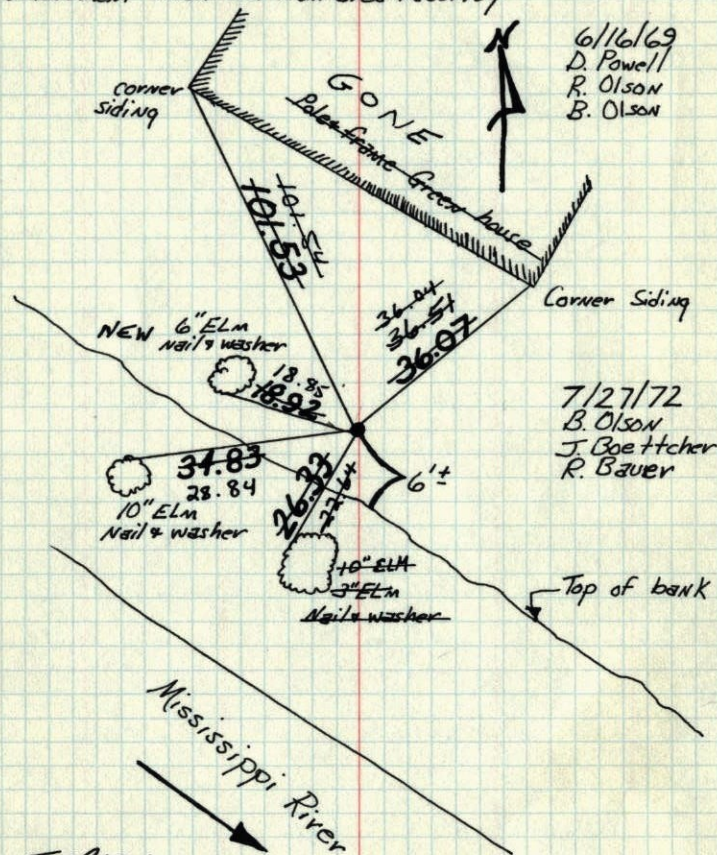 6/16/69
D. Powell
R. Olson
B. Olson
N
corner
siding
GONE
Pole & frame Green house
101.54
101.53
Corner Siding
36.04
36.54
36.07
NEW 6" ELM
Nail & washer
18.85
18.92
7/27/72
B. Olson
J. Boettcher
R. Bauer
34.83
28.84
10" ELM
Nail & washer
26.33
22.64
6'±
10" ELM
3" ELM
Nail & washer
Top of bank
Mississippi River